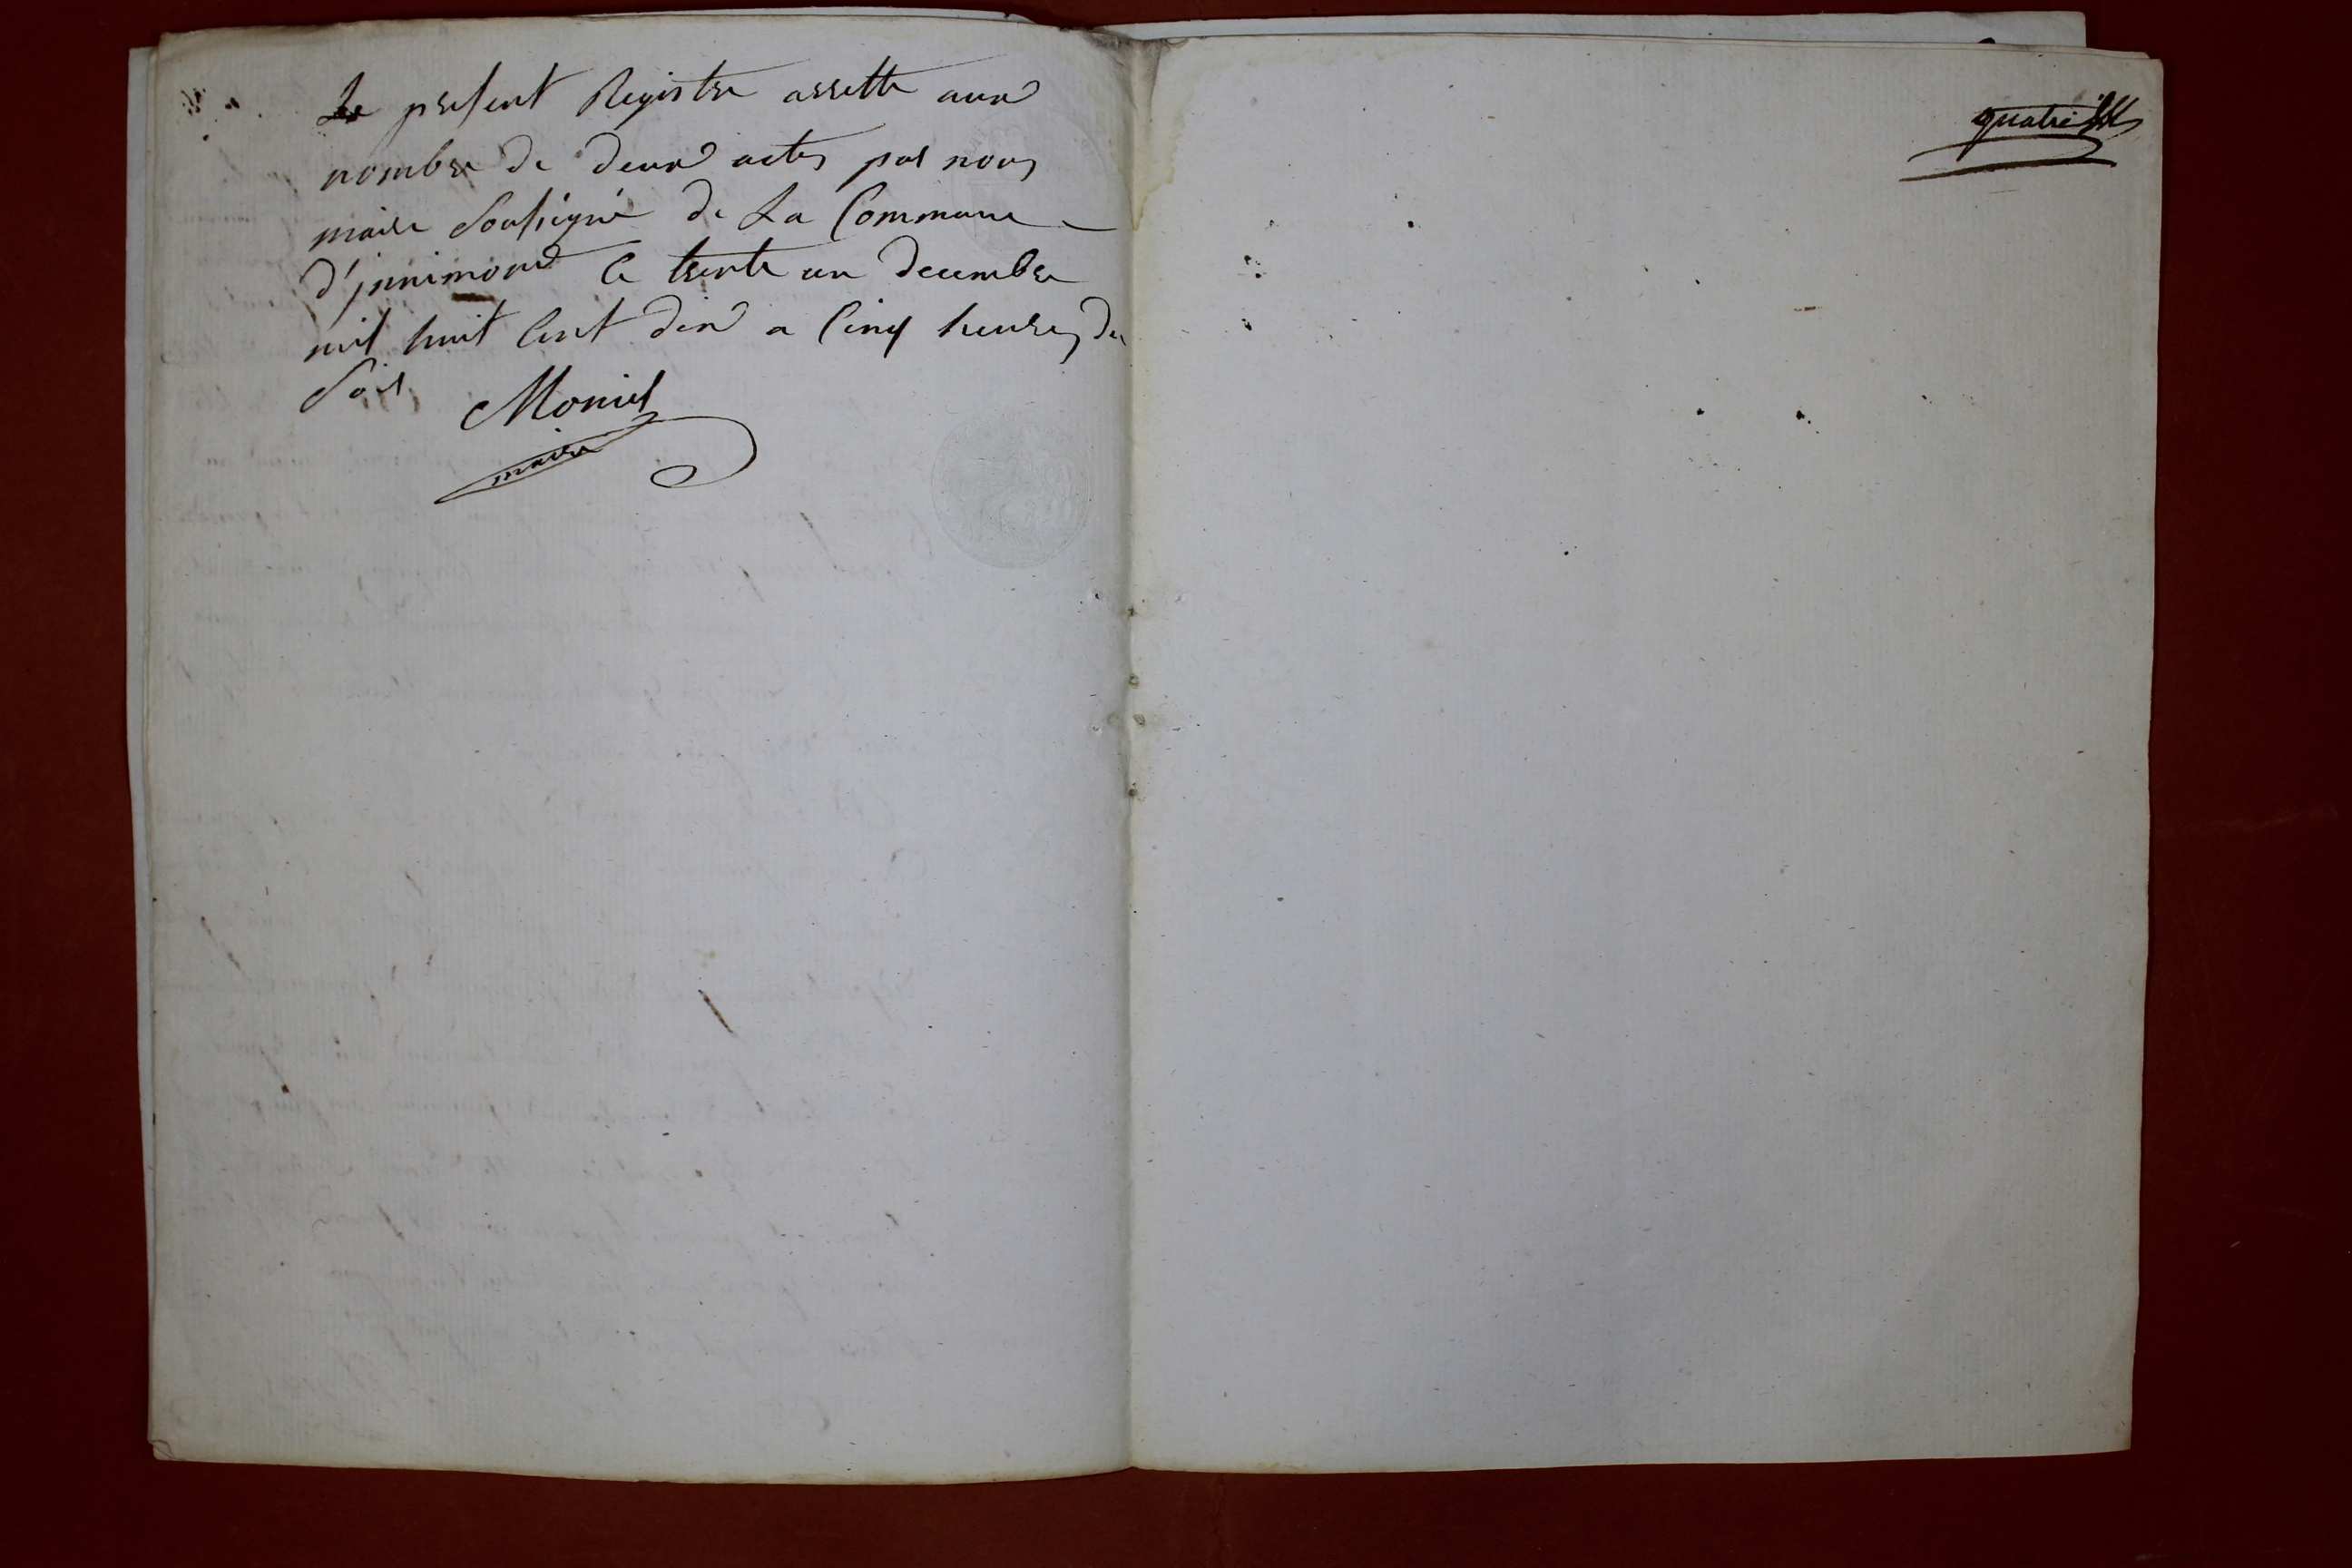 Le present Registre arretté aux
nombre de deux actes par nous
maire Soussigné de La Commune
d'jnnimond le trente un decembre
mil huit Cent dix a Cinq heures du
Soir Moniet
maire
quatre